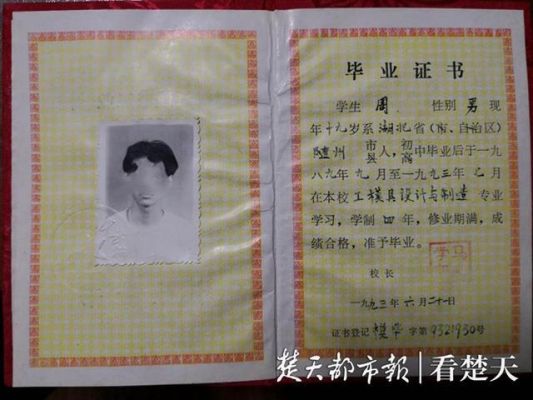 毕业证书
学生 周 性别 男 现
年十九岁系湖北省(市、自治区)
随州 市县人,初高中毕业后于一九
八九年九月至一九九三年七月
在本校工模具设计与制造专业
学习,学制四年,修业期满,成
绩合格,准予毕业。
校长
一九九三年六月二十一日
证书登记模毕字第9321930号
楚天都市报 看楚天